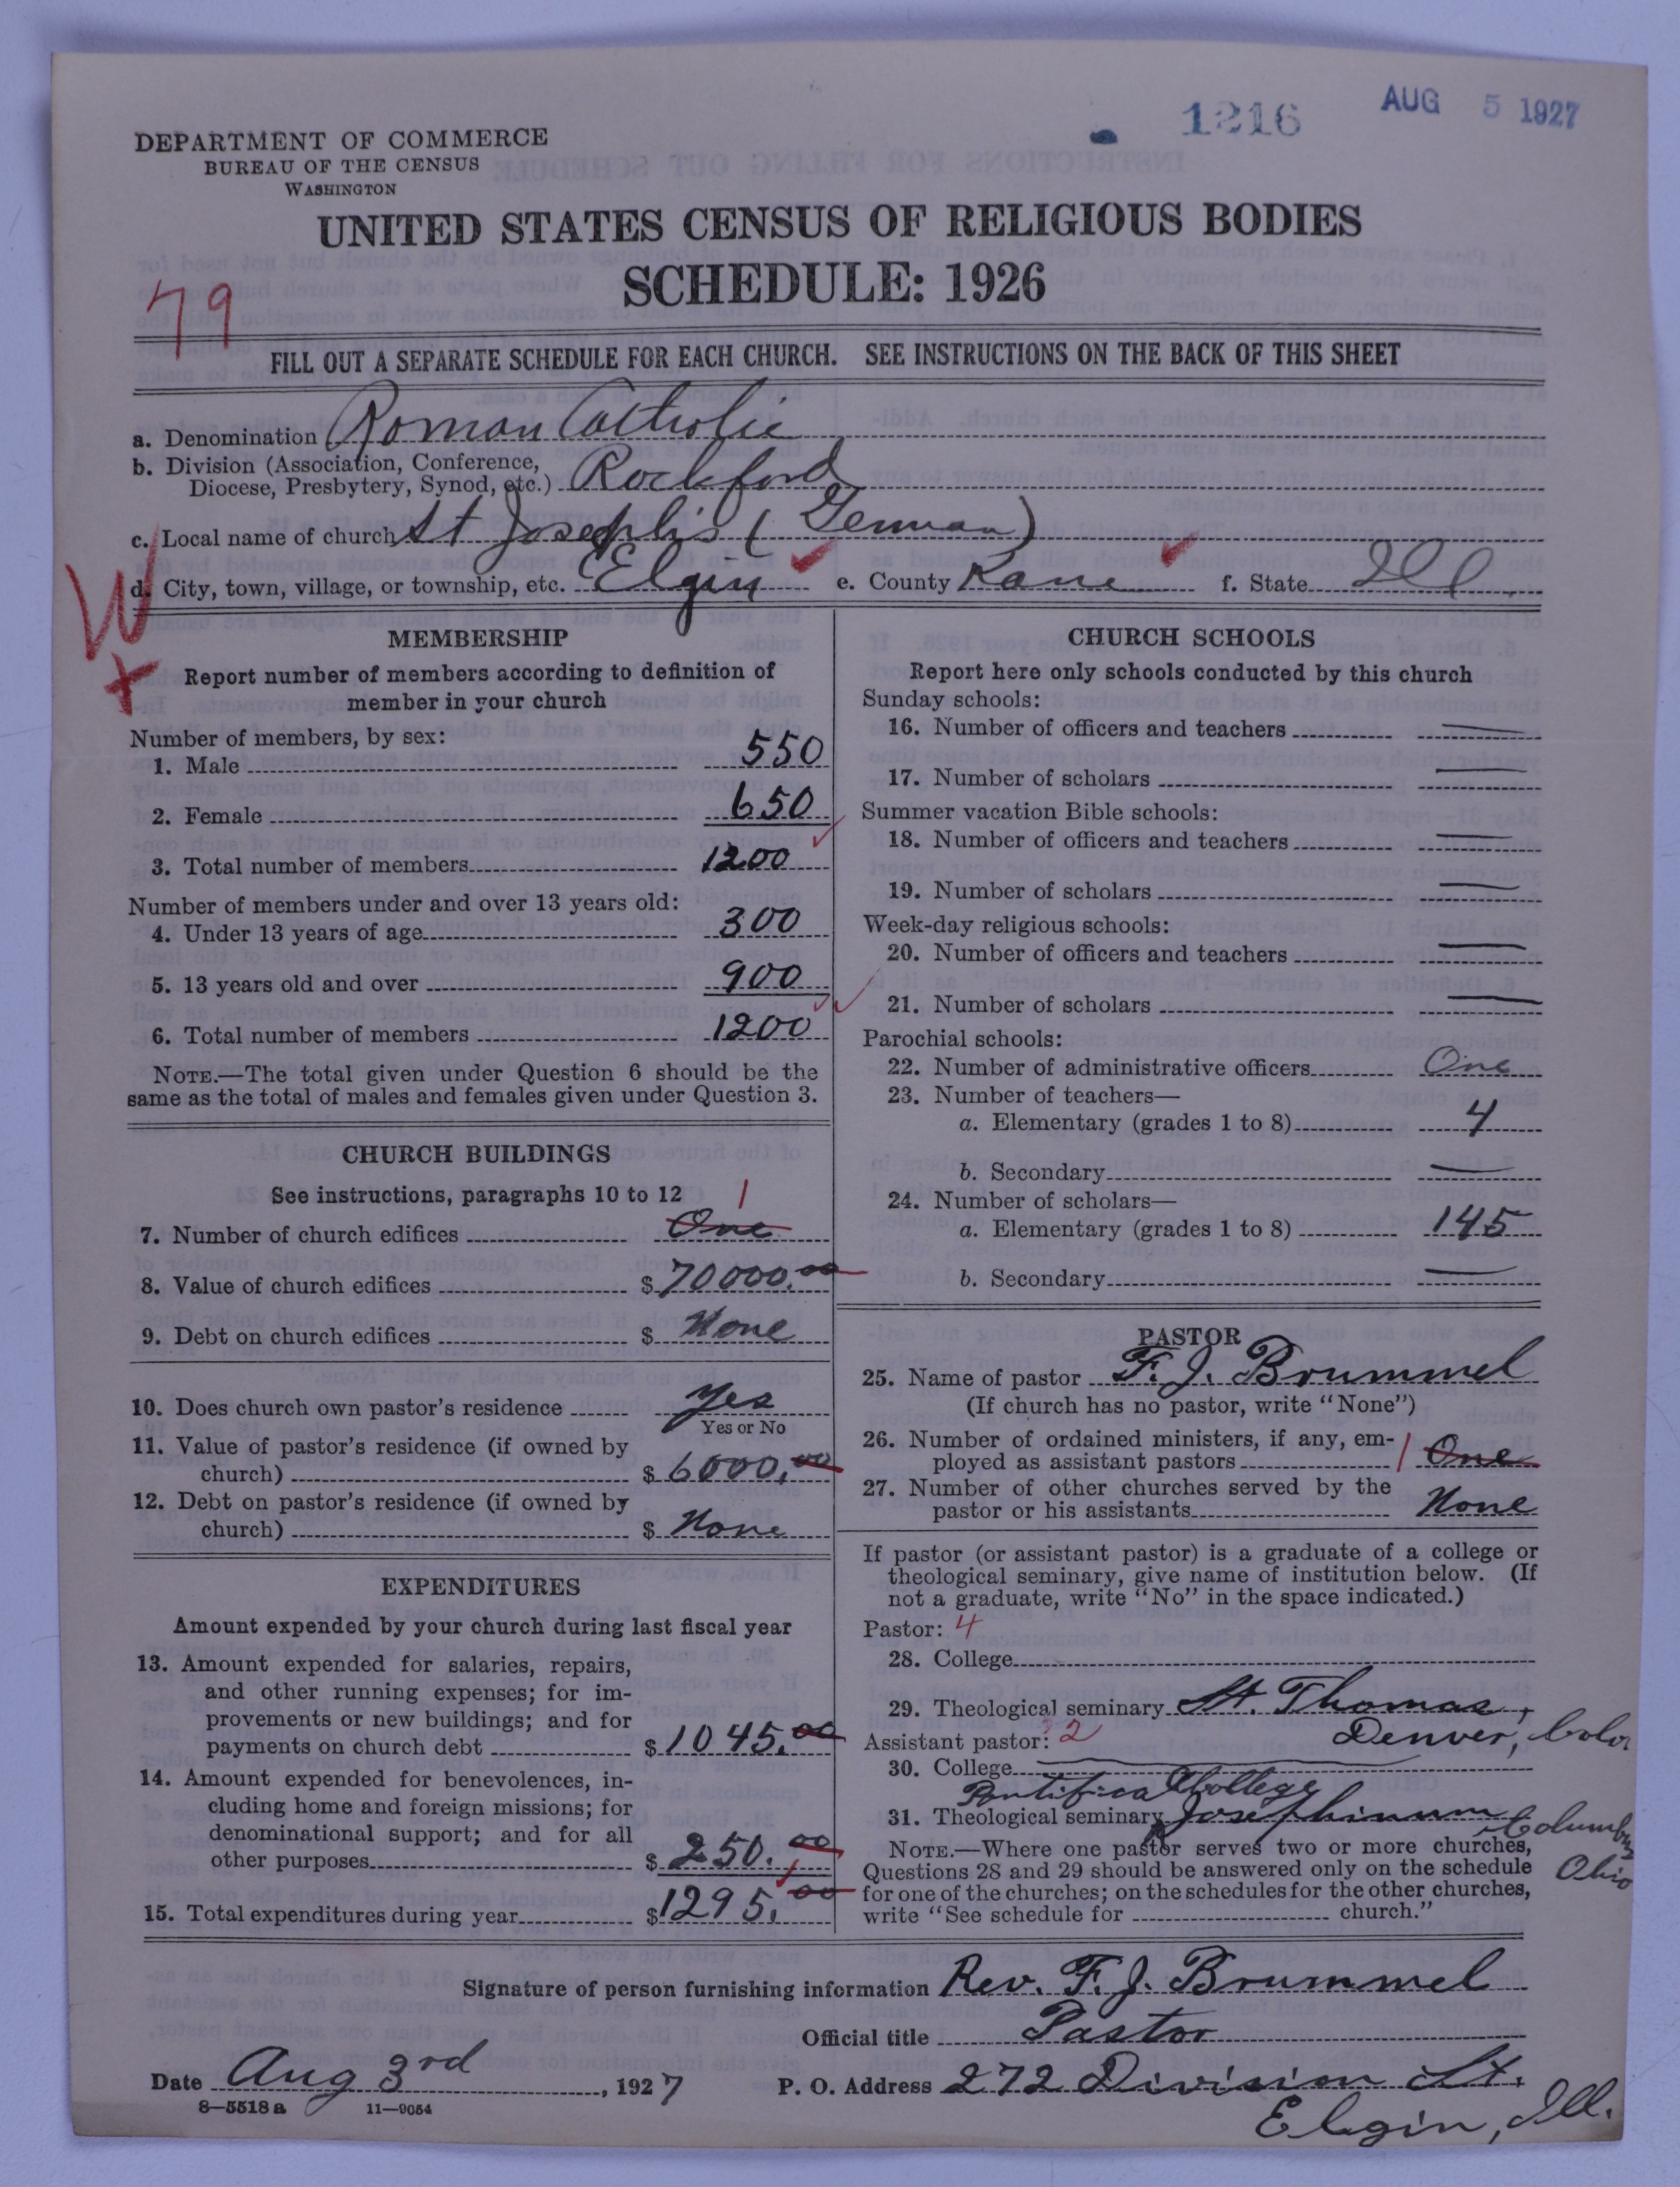 1216 AUG 5 1927
DEPARTMENT OF COMMERCE
BUREAU OF THE CENSUS
WASHINGTON
UNITED STATES CENSUS OF RELIGIOUS BODIES
SCHEDULE: 1926
79
FILL OUT A SEPARATE SCHEDULE FOR EACH CHURCH. SEE INSTRUCTIONS ON THE BACK OF THIS SHEET
a. Denomination Roman Catholic
b. Division (Association, Conference,
Diocese, Presbytery, Synod, etc.) Rockford
c. Local name of church St Joseph's (German)
d. City, town, village, or township, etc. Elgin e. County Kane f. State Ill.
W
+
MEMBERSHIP
Report number of members according to definition of
member in your church
Number of members, by sex:
1. Male 550
2. Female 650
3. Total number of members 1200
Number of members under and over 13 years old:
4. Under 13 years of age 300
5. 13 years old and over 900
6. Total number of members 1200
NOTE.—The total given under Question 6 should be the
same as the total of males and females given under Question 3.
CHURCH BUILDINGS
See instructions, paragraphs 10 to 12
1
7. Number of church edifices One
8. Value of church edifices $ 70000.00
9. Debt on church edifices $ None
10. Does church own pastor's residence Yes
Yes or No
11. Value of pastor's residence (if owned by
church) $ 6000.00
12. Debt on pastor's residence (if owned by
church) $ None
EXPENDITURES
Amount expended by your church during last fiscal year
13. Amount expended for salaries, repairs,
and other running expenses; for im-
provements or new buildings; and for
payments on church debt $ 1045.00
14. Amount expended for benevolences, in-
cluding home and foreign missions; for
denominational support; and for all
other purposes $ 250.00
15. Total expenditures during year $ 1295.00
CHURCH SCHOOLS
Report here only schools conducted by this church
Sunday schools:
16. Number of officers and teachers —
17. Number of scholars —
Summer vacation Bible schools:
18. Number of officers and teachers —
19. Number of scholars —
Week-day religious schools:
20. Number of officers and teachers —
21. Number of scholars —
Parochial schools:
22. Number of administrative officers One
23. Number of teachers—
a. Elementary (grades 1 to 8) 4
b. Secondary —
24. Number of scholars—
a. Elementary (grades 1 to 8) 145
b. Secondary —
PASTOR
25. Name of pastor F. J. Brummel
(If church has no pastor, write "None")
26. Number of ordained ministers, if any, em-
ployed as assistant pastors 1 One
27. Number of other churches served by the
pastor or his assistants None
If pastor (or assistant pastor) is a graduate of a college or
theological seminary, give name of institution below. (If
not a graduate, write "No" in the space indicated.)
Pastor: 4
28. College
29. Theological seminary St. Thomas,
Denver, Colo
Assistant pastor: 2
30. College
Pontifical College
31. Theological seminary Josephinum Columbus
Ohio
NOTE.—Where one pastor serves two or more churches,
Questions 28 and 29 should be answered only on the schedule
for one of the churches; on the schedules for the other churches,
write "See schedule for church."
Signature of person furnishing information Rev. F. J. Brummel
Official title Pastor
Date Aug 3rd, 1927 P. O. Address 272 Division St.
Elgin, Ill.
8—5518 a 11—9054